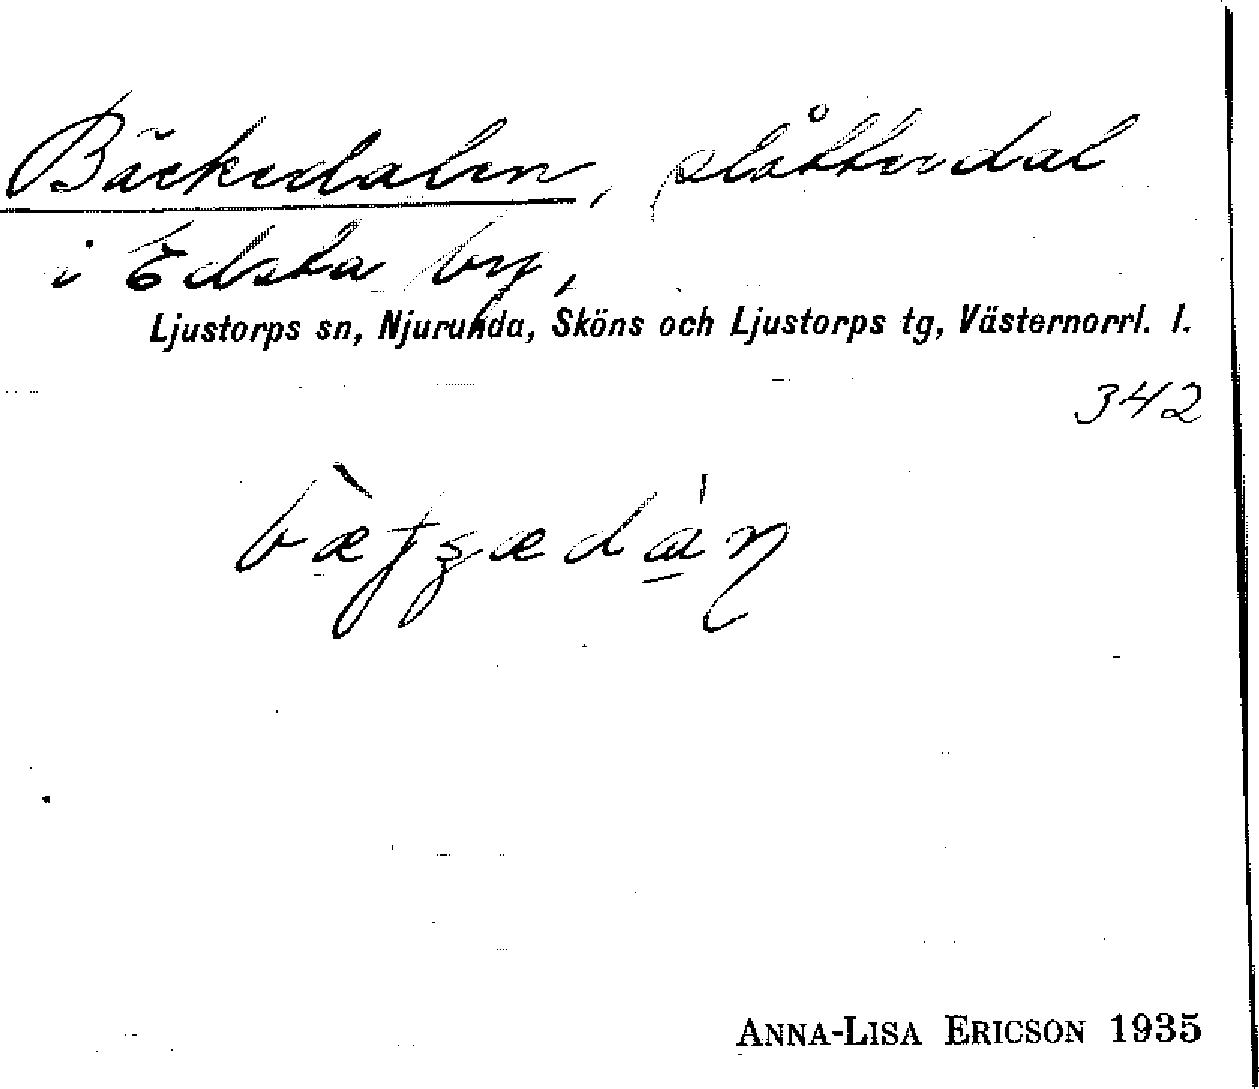 Bäckedalen, slåtterdal
i Edsta by,
Ljustorps sn, Njurunda, Sköns och Ljustorps tg, Västernorrl. l.
342
ANNA-LISA ERICSON 1935